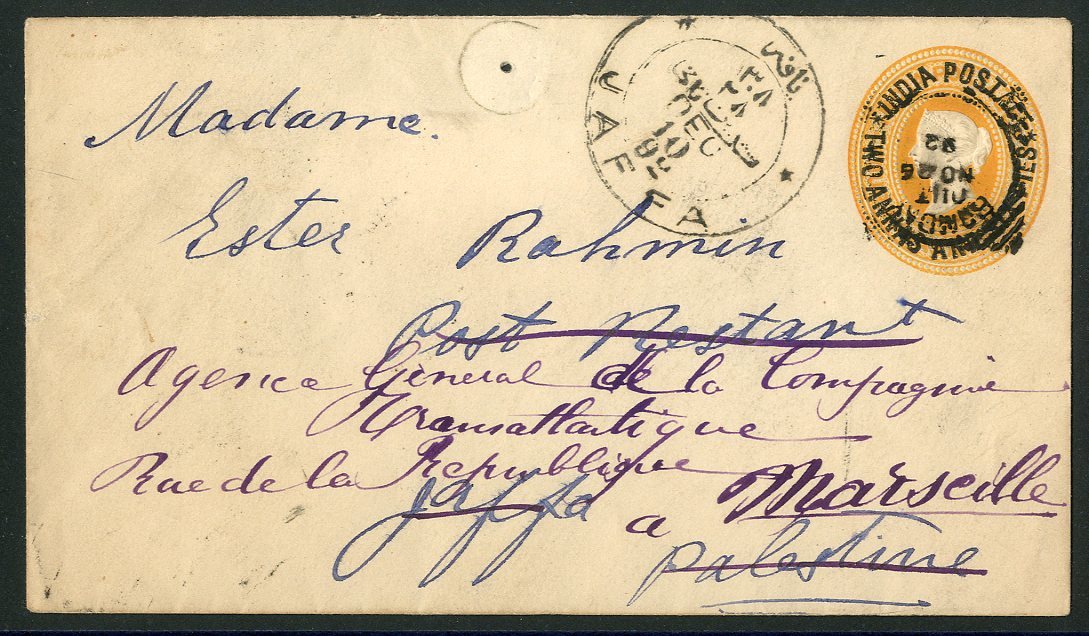 Madame.
Ester Rahmin
Post Restant
Agence General de la Compagnie
Transatlantique
Rue de la Republique
Jaffa
a Marseille
Palestine
JAFFA
يافه
DEC
10
92
INDIA POSTAGE
TWO ANNAS SIX PIES
BOMBAY
OUT
NO 26
92